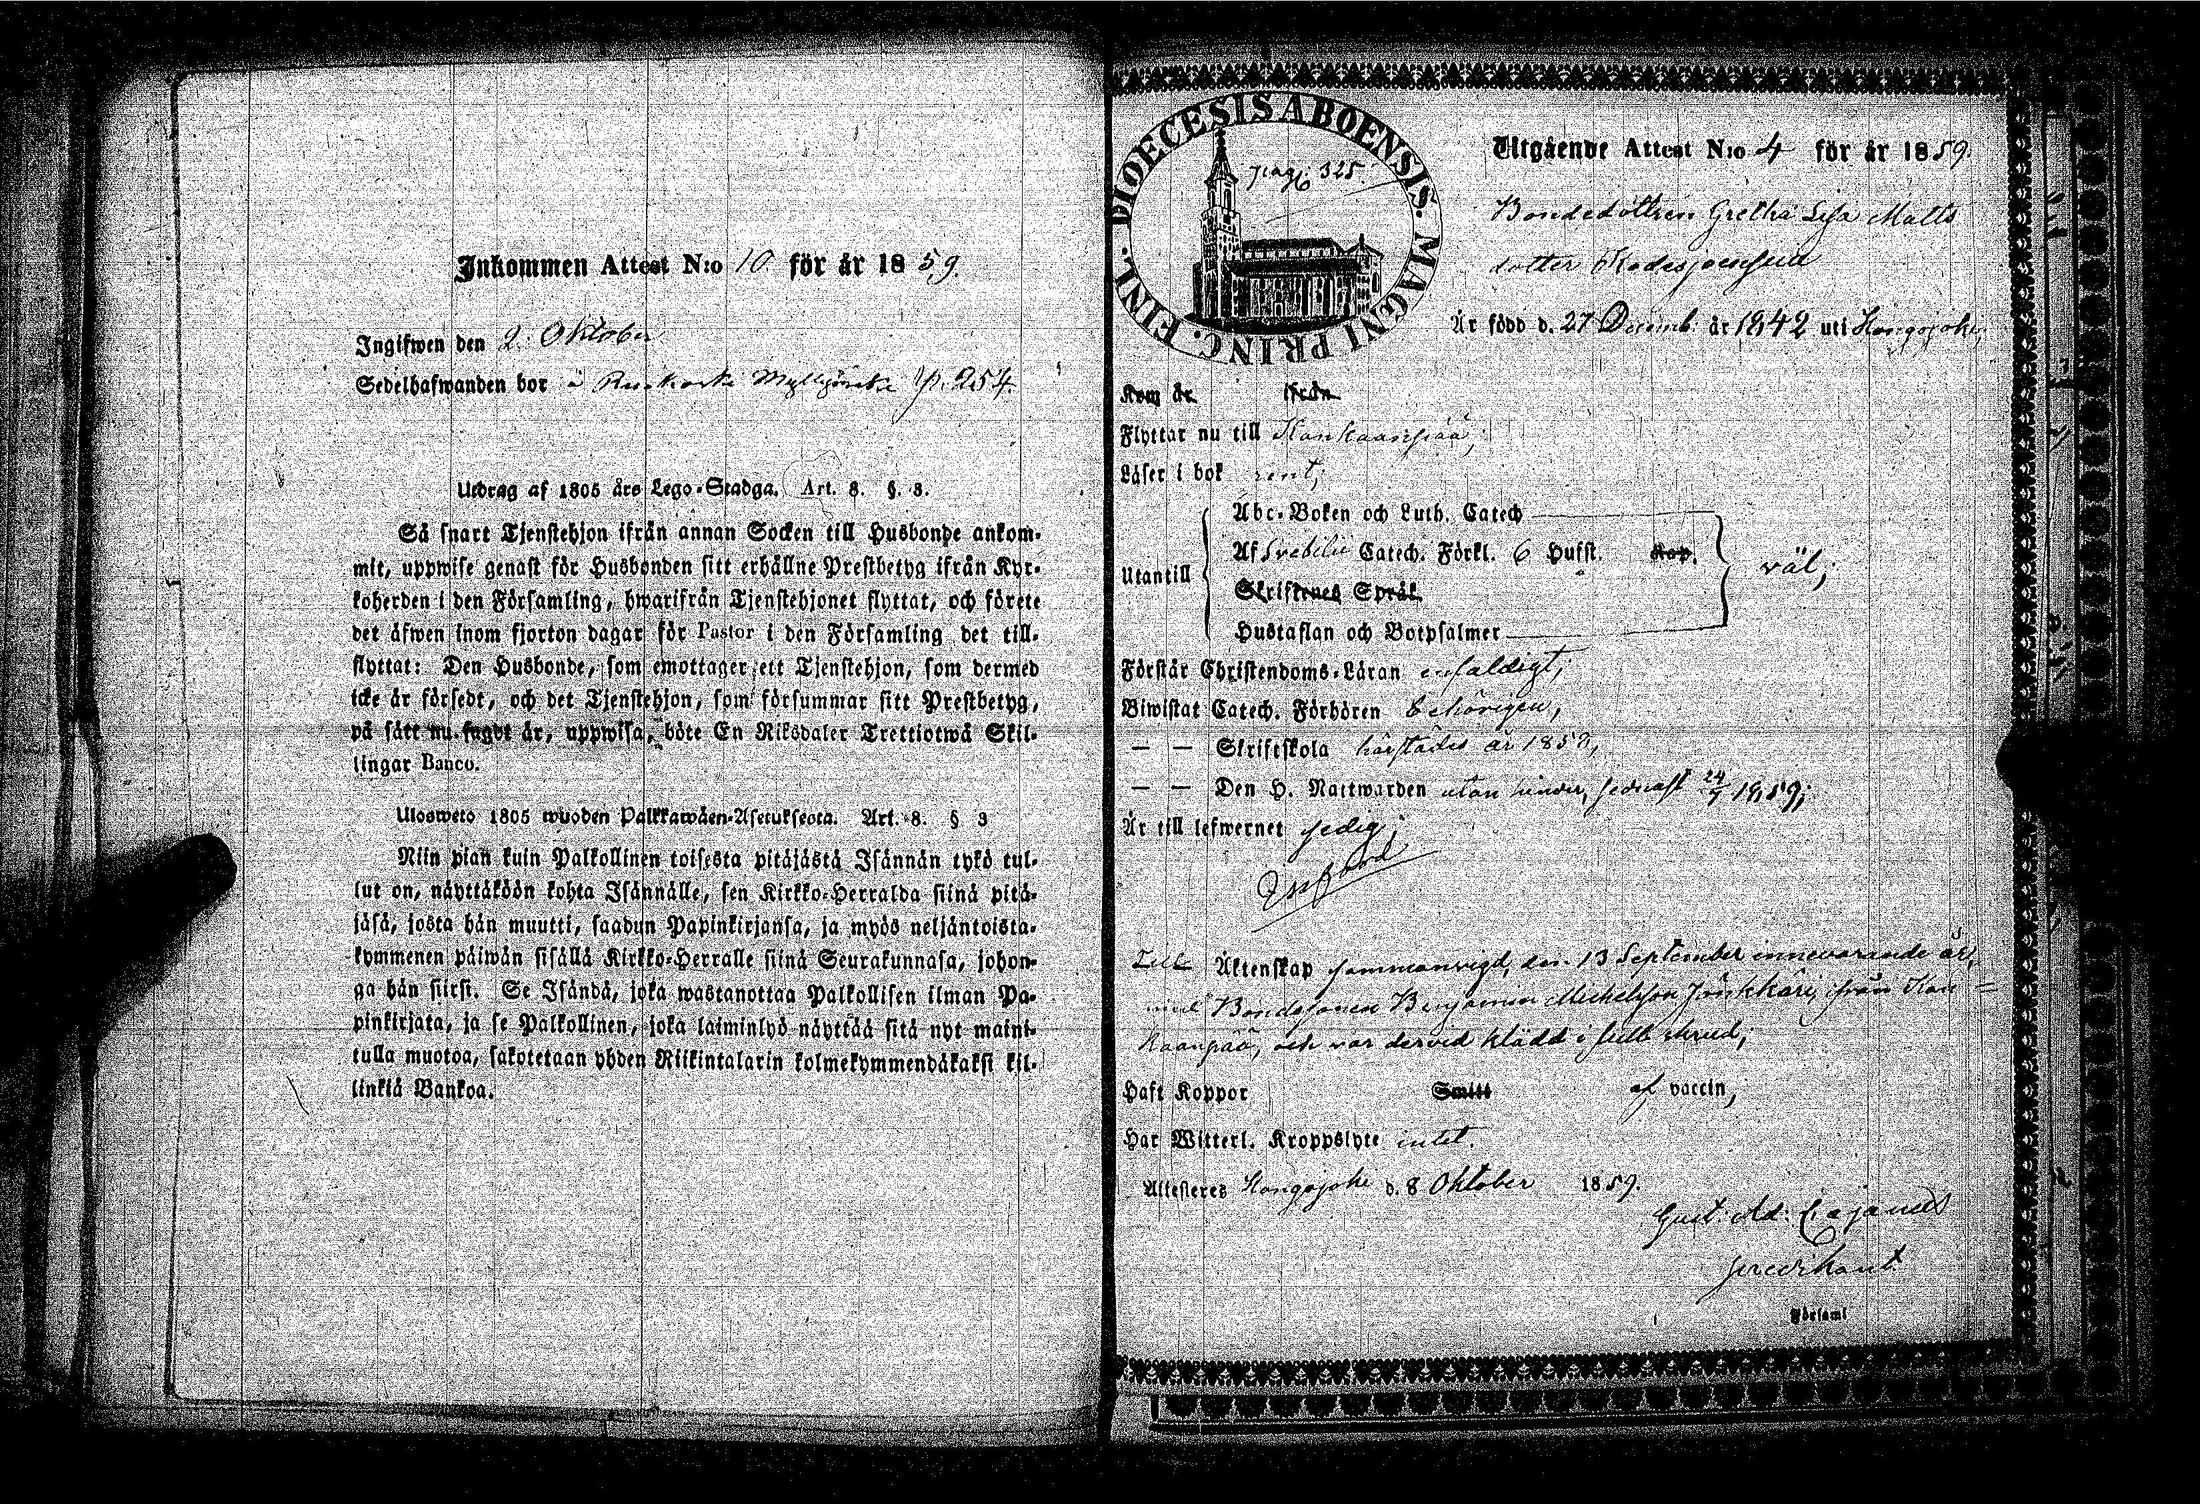 Inkommen Attest N:o 10 för år 1859.
Ingifwen den 2. Oktober
Sedelhafwanden bor å Myllymäki p. 254.
Utdrag af 1805 års Lego-Stadga. Art. 8. §. 3.
Så snart Tjenstehjon ifrån annan Socken till Husbonde ankom-
mit, uppwise genast för Husbonden sitt erhållne Prestbetyg ifrån Kyr-
koherden i den Församling, hwarifrån Tjenstehjonet flyttat, och förete
det äfwen inom fjorton dagar för Pastor i den Församling det till-
flyttat: Den Husbonde, som emottager ett Tjenstehjon, som dermed
icke är försedt, och det Tjenstehjon, som försummar sitt Prestbetyg,
på sätt nu sagdt är, uppwisa, böte En Riksdaler Trettiotwå Skil-
lingar Banco.
Ulosweto 1805 wuoden Palkkawäen-Asetuksesta. Art. 8. § 3
Niin pian kuin Palkollinen toisesta pitäjästä Isännän tykö tul-
lut on, näyttäköön kohta Isännälle, sen Kirkko-Herralda siinä pitä-
jäsä, josta hän muutti, saadun Papinkirjansa, ja myös neljäntoista-
kymmenen päiwän sisällä Kirkko-Herralle siinä Seurakunnasa, johon-
ga hän siirsi. Se Isändä, joka wastanottaa Palkollisen ilman Pa-
pinkirjata, ja se Palkollinen, joka laiminlyö näyttää sitä nyt maini-
tulla muotoa, sakotetaan yhden Riikintalarin kolmekymmendäkaksi kil-
linkiä Bankoa.
DIOECESIS ABOENSIS. MAGNI PRINC. FINL.
pag. 325
Utgående Attest N:o 4 för år 1859.
Bondedottren Gretha Lisa Matts
dotter
Är född d. 27 Decemb. år 1842 uti Hongojoki,
Kom år ifrån
Flyttar nu till Kankaanpää,
Läser i bok rent,
Utantill
Abc-Boken och Luth. Catech
Af Svebilii Catech. Förkl. 6 Hufst. Kap.
Skriftenes Språk
Hustaflan och Botpsalmer
väl;
Förstår Christendoms-Läran enfaldigt;
Biwistat Catech. Förhören behörigen,
— — Skriftskola härstädes år 1858,
— — Den H. Nattwarden utan hinder, sednast 24/7 1859;
Är till lefwernet sedig;
Till Äktenskap sammanvigd den 13 September innevarande år,
med Bondesonen Benjamin Michelsson Jänkkäri ifrån Kan=
kaanpää, och var dervid klädd i full skrud;
Haft Koppor Smitt af vaccin,
Har Witterl. Kroppslyte intet.
Attesteres Hongojoki d. 8 Oktober 1859.
Gust. Ad: Cajanus
predikant.
Församl